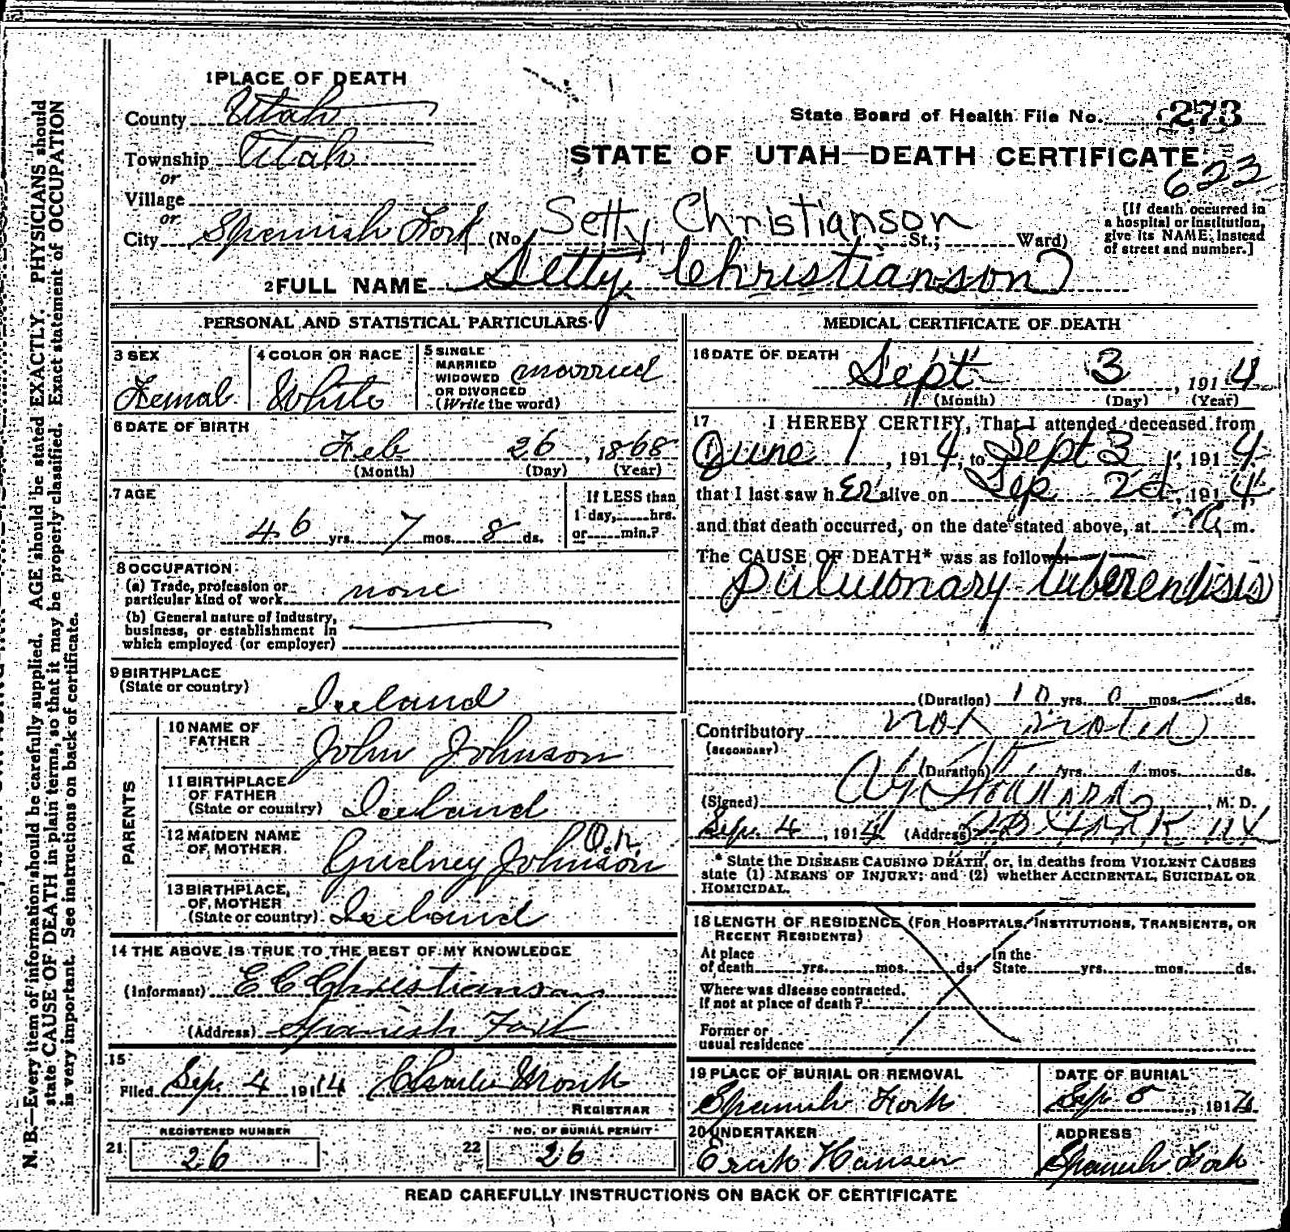 1 PLACE OF DEATH
County Utah
State Board of Health File No. 273
Township Utah
or
STATE OF UTAH—DEATH CERTIFICATE
622
Village
or
City Spanish Fork (No. Setty Christianson St.; Ward)
[If death occurred in
a hospital or institution,
give its NAME, instead
of street and number.]
2 FULL NAME Setty Christianson
PERSONAL AND STATISTICAL PARTICULARS
3 SEX
Femal
4 COLOR OR RACE
White
5 SINGLE
MARRIED
WIDOWED
OR DIVORCED
(Write the word)
married
6 DATE OF BIRTH
Feb 26, 1868
(Month) (Day) (Year)
7 AGE
46 yrs. 7 mos. 8 ds.
If LESS than
1 day, hrs.
or min.?
8 OCCUPATION
(a) Trade, profession or
particular kind of work none
(b) General nature of industry,
business, or establishment in
which employed (or employer)
9 BIRTHPLACE
(State or country)
Iceland
PARENTS
10 NAME OF
FATHER
John Johnson
11 BIRTHPLACE
OF FATHER
(State or country) Iceland
12 MAIDEN NAME
OF MOTHER
Gudney Johnson
13 BIRTHPLACE
OF MOTHER
(State or country) Iceland
14 THE ABOVE IS TRUE TO THE BEST OF MY KNOWLEDGE
(Informant) E C Christianson
(Address) Spanish Fork
15
Filed Sep. 4 1914 Charles Monk
REGISTRAR
REGISTERED NUMBER
21 26
NO. OF BURIAL PERMIT
22 26
MEDICAL CERTIFICATE OF DEATH
16 DATE OF DEATH
Sept 3, 1914
(Month) (Day) (Year)
17 I HEREBY CERTIFY, That I attended deceased from
June 1, 1914, to Sept 3, 1914
that I last saw her alive on Sep 2d, 1914
and that death occurred, on the date stated above, at m.
The CAUSE OF DEATH* was as follows:
pulmonary tuberculosis
(Duration) 10 yrs. 0 mos. ds.
Contributory not noted
(SECONDARY)
(Duration) yrs. mos. ds.
(Signed) M. D.
Sep. 4, 1914 (Address)
* State the DISEASE CAUSING DEATH, or, in deaths from VIOLENT CAUSES
state (1) MEANS OF INJURY; and (2) whether ACCIDENTAL, SUICIDAL OR
HOMICIDAL.
18 LENGTH OF RESIDENCE (FOR HOSPITALS, INSTITUTIONS, TRANSIENTS, OR
RECENT RESIDENTS)
At place
of death yrs. mos. ds.
In the
State yrs. mos. ds.
Where was disease contracted,
If not at place of death?
Former or
usual residence
19 PLACE OF BURIAL OR REMOVAL
Spanish Fork
DATE OF BURIAL
Sep 5, 1914
20 UNDERTAKER
Erick Hansen
ADDRESS
Spanish Fork
READ CAREFULLY INSTRUCTIONS ON BACK OF CERTIFICATE
N. B.—Every item of information should be carefully supplied. AGE should be stated EXACTLY. PHYSICIANS should
state CAUSE OF DEATH in plain terms, so that it may be properly classified. Exact statement of OCCUPATION
is very important. See instructions on back of certificate.